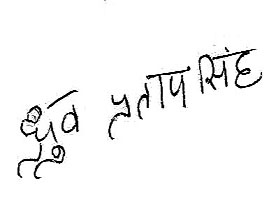 ध्रुव प्रताप सिंह